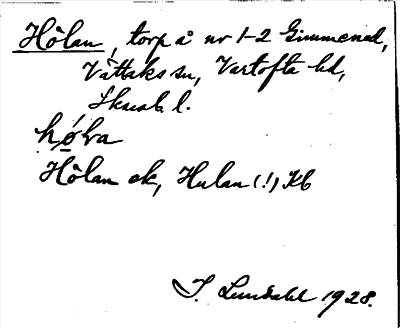 Hôlan, torp å nr 1-2 Gimmened,
Vättaks sn, Vartofta hd,
Skarab. l.
hø̨̄la
Hôlan ek, Hulan (!) Kb
I. Lundahl 1928.